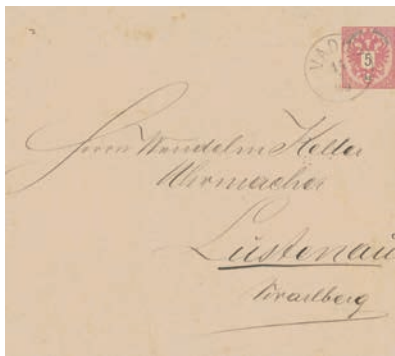 VADUZ
5
Herrn Wendelin Keller
Uhrmacher
Lustenau
Vorarlberg